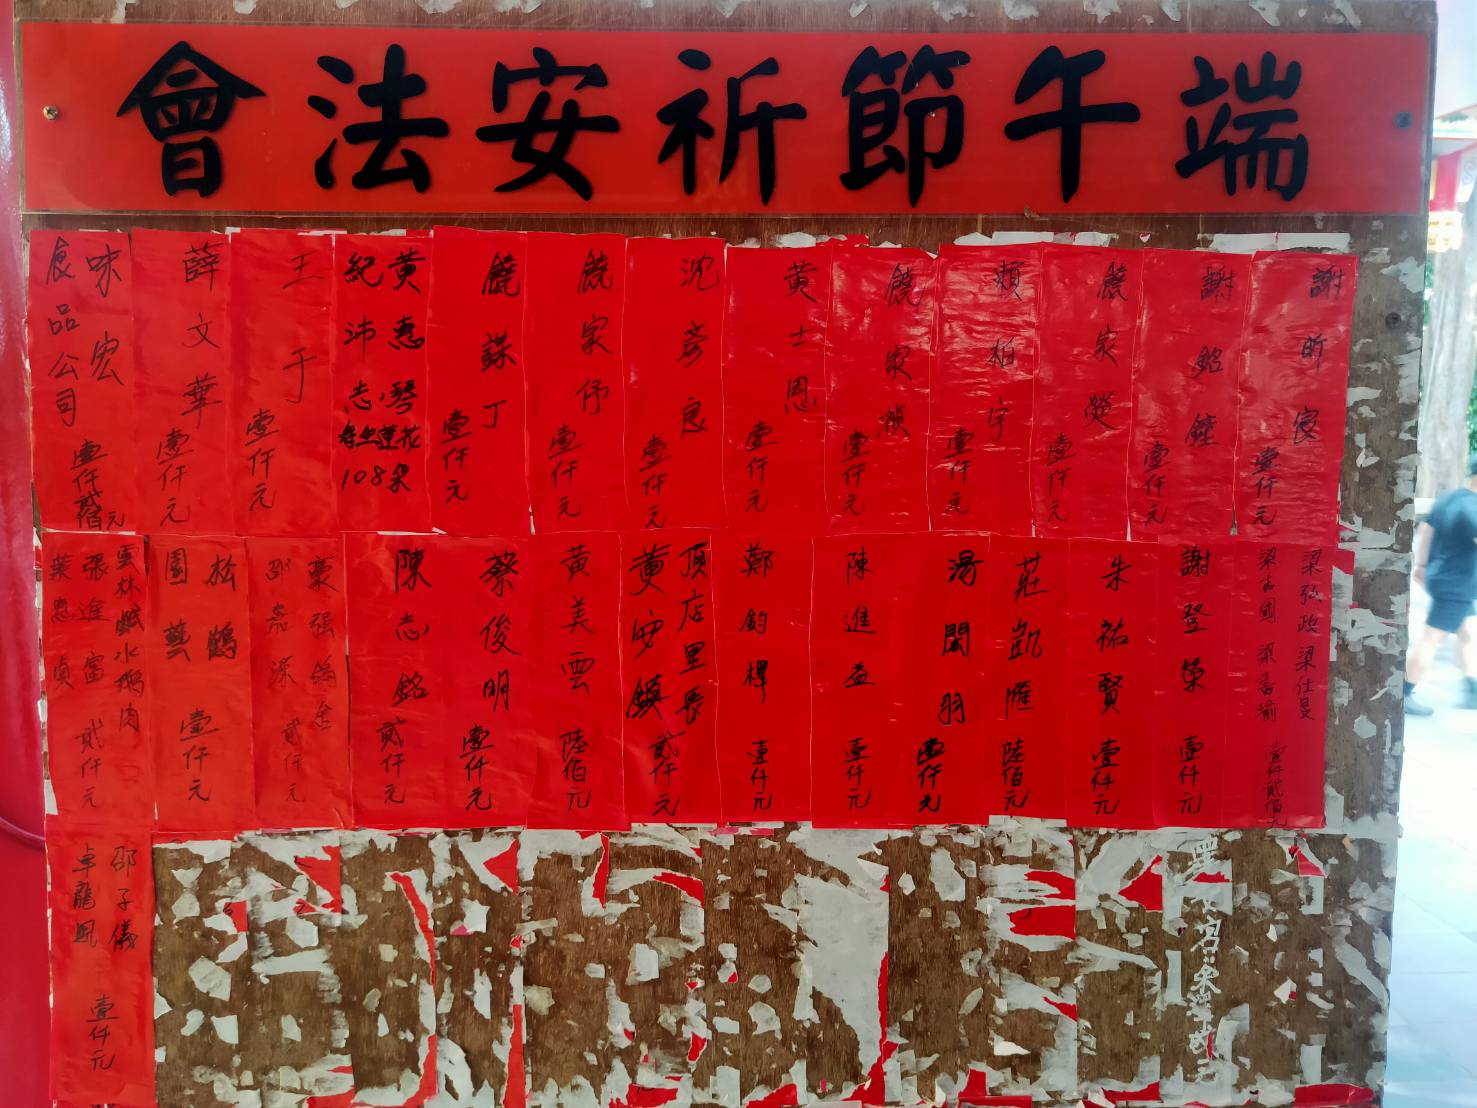 端午節祈安法會
謝昕宸 壹仟元
謝銘鍾 壹仟元
饒家熒 壹仟元
賴柏宇 壹仟元
饒家禎 壹仟元
黃士恩 壹仟元
沈彥良 壹仟元
饒家伃 壹仟元
饒謀丁 壹仟元
黃惠琴
紀沛志
蓮花
108朵
王于 壹仟元
薛文華 壹仟元
味宏
食品公司
壹仟貳佰元
梁弘政 梁仕旻
梁吉國 梁書瑜
壹仟貳佰元
謝登榮 壹仟元
朱祐賢 壹仟元
莊凱匯 陸佰元
湯閔羽 壹仟元
陳進益 壹仟元
鄭鈞樺 壹仟元
頂店里長
黃安鎮
貳仟元
黃美雲 陸佰元
蔡俊明 壹仟元
陳志銘 貳仟元
豪強
邵嘉深
貳仟元
松鶴
園藝
壹仟元
雲林鹹水鵝肉
張進富
葉惠貞
貳仟元
邵子儀
卓龍凰
壹仟元